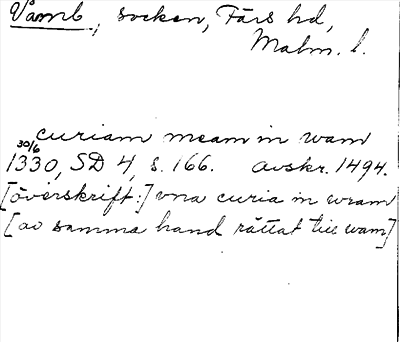 Vamb, socken, Färs hd,
Malm. l.
curiam meam in wam
30/6
1330, SD 4, s. 166. avskr. 1494.
[överskrift:] vna curia in wram
[av samma hand rättat till wam]